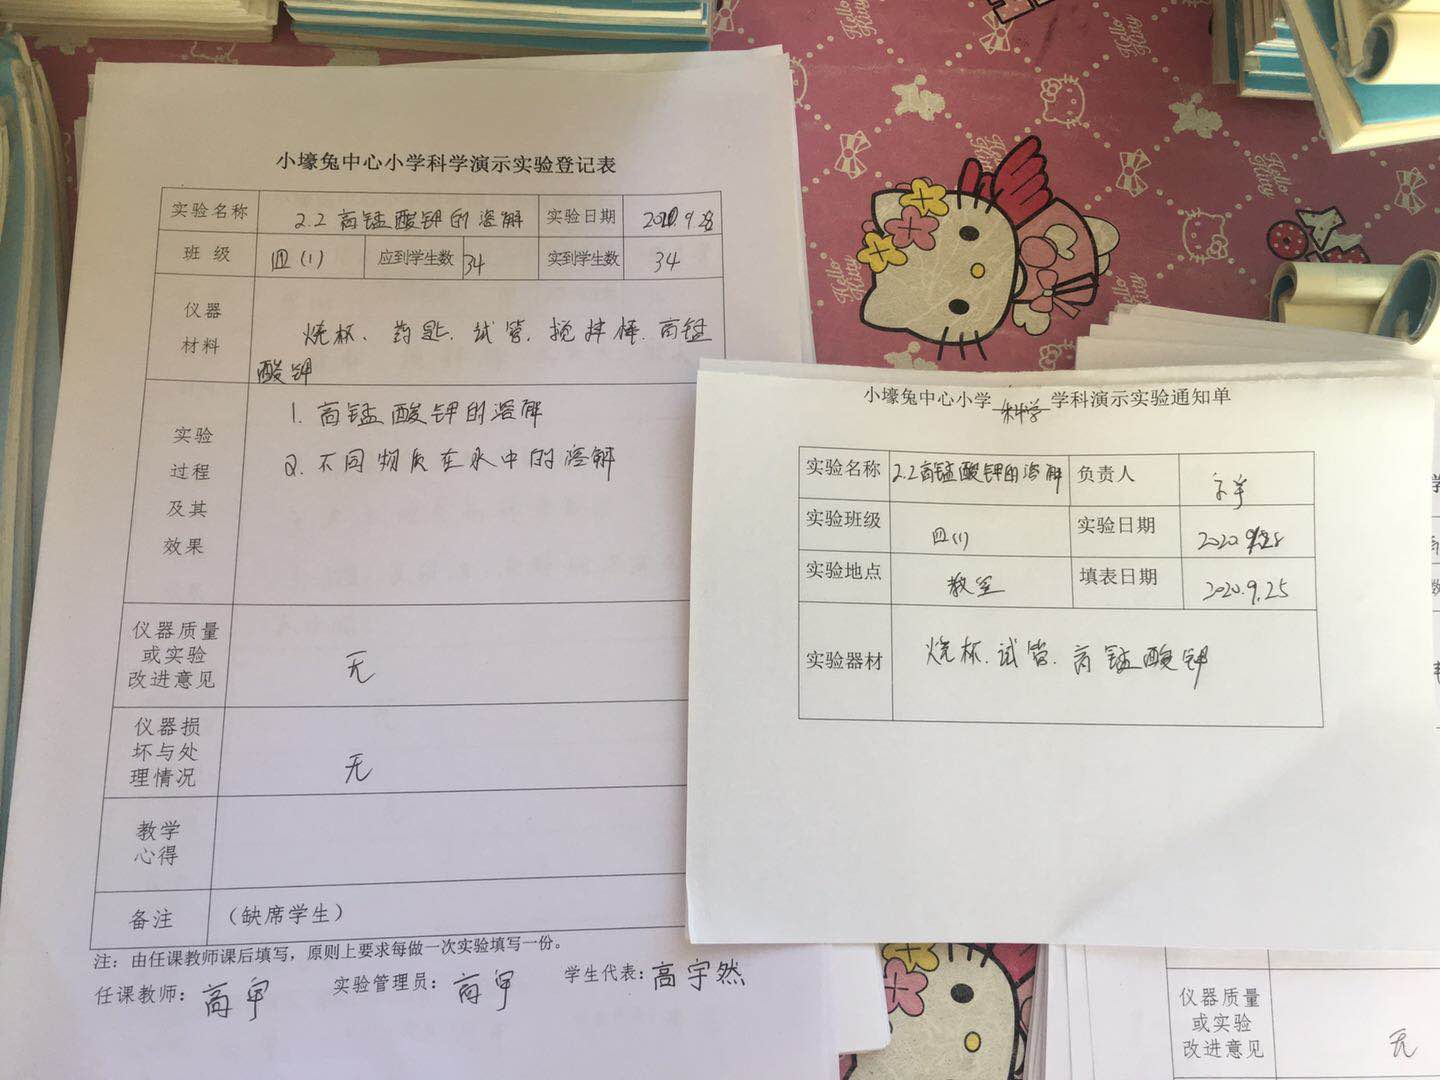 小壕兔中心小学科学演示实验登记表
实验名称 2.2 高锰酸钾的溶解 实验日期
班 级 四(1) 应到学生数 34 实到学生数 34
仪器
材料
烧杯、药匙、试管、搅拌棒、高锰
酸钾
实验
过程
及其
效果
1. 高锰酸钾的溶解
2. 不同物质在水中的溶解
仪器质量
或实验
改进意见
无
仪器损
坏与处
理情况
无
教学
心得
备注 (缺席学生)
注：由任课教师课后填写，原则上要求每做一次实验填写一份。
任课教师：高宇 实验管理员：高宇 学生代表：高宇然
小壕兔中心小学 科学 学科演示实验通知单
实验名称 2.2高锰酸钾的溶解 负责人
实验班级 四(1) 实验日期
实验地点 教室 填表日期 2020.9.25
实验器材 烧杯、试管、高锰酸钾
仪器质量
或实验
改进意见
无
Hello Kitty
Hello Kitty
Hello Kitty
Hello Kitty